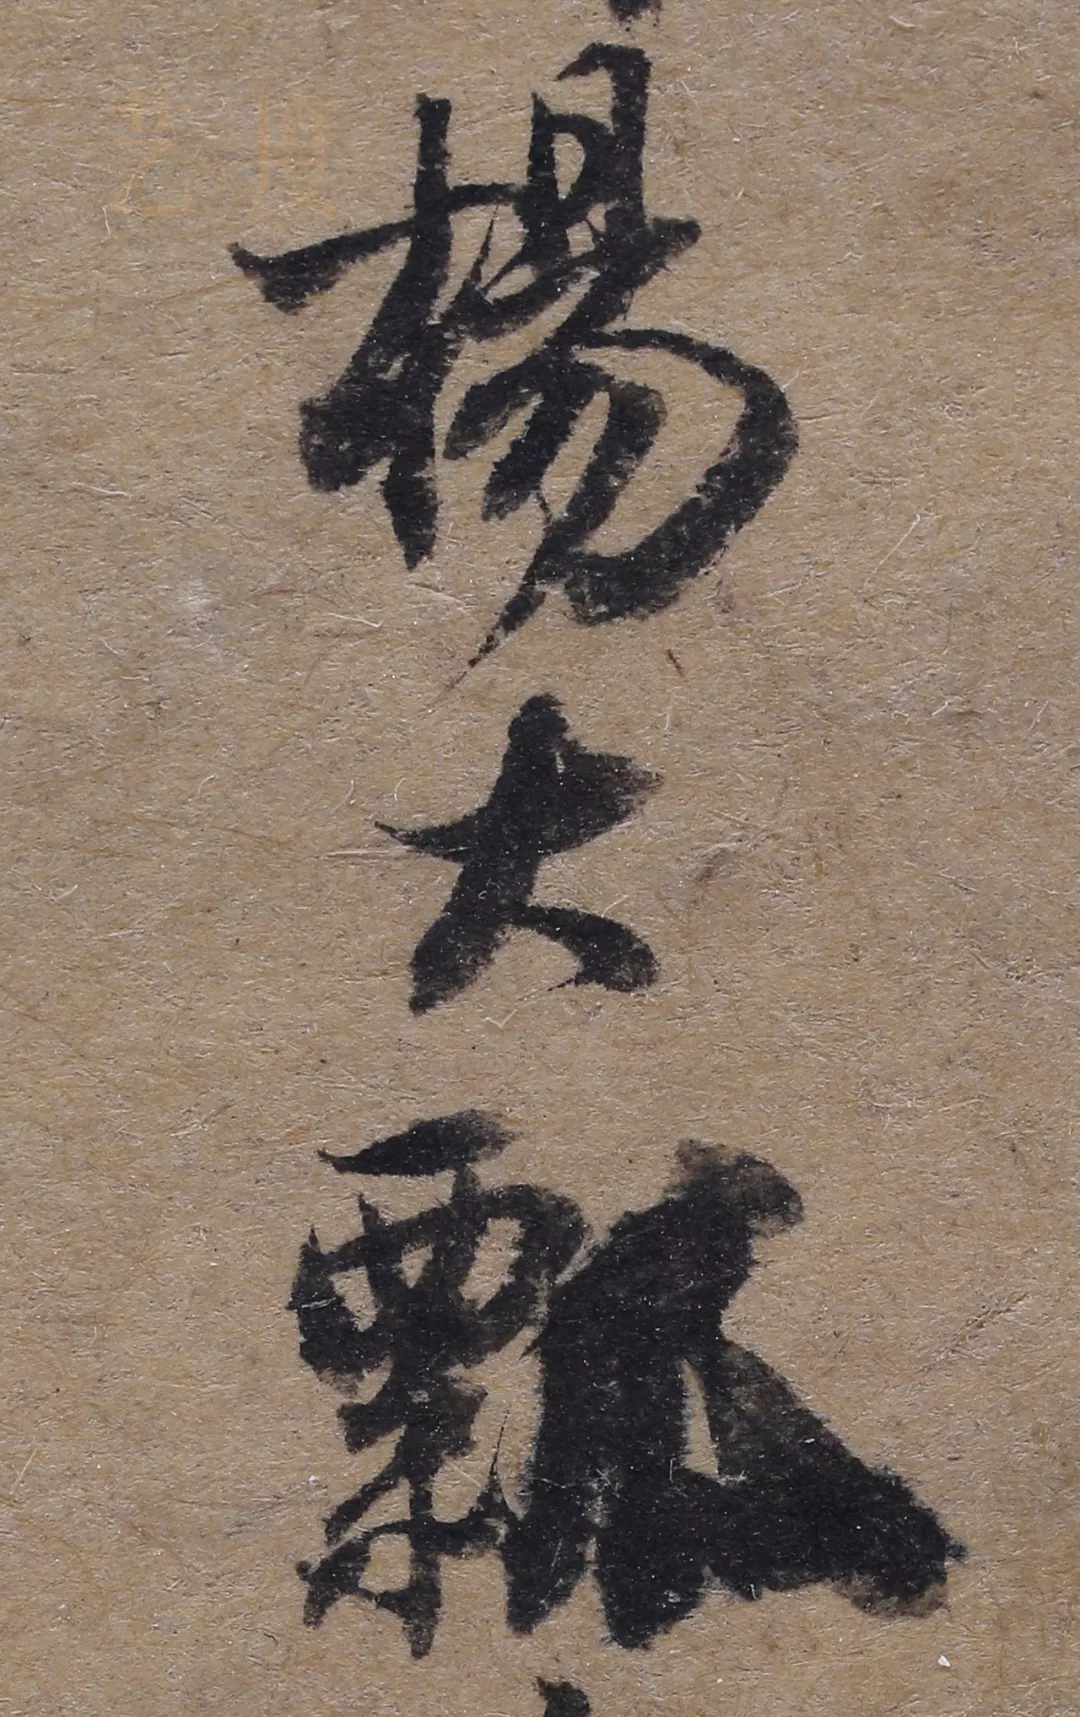 楊大瓢